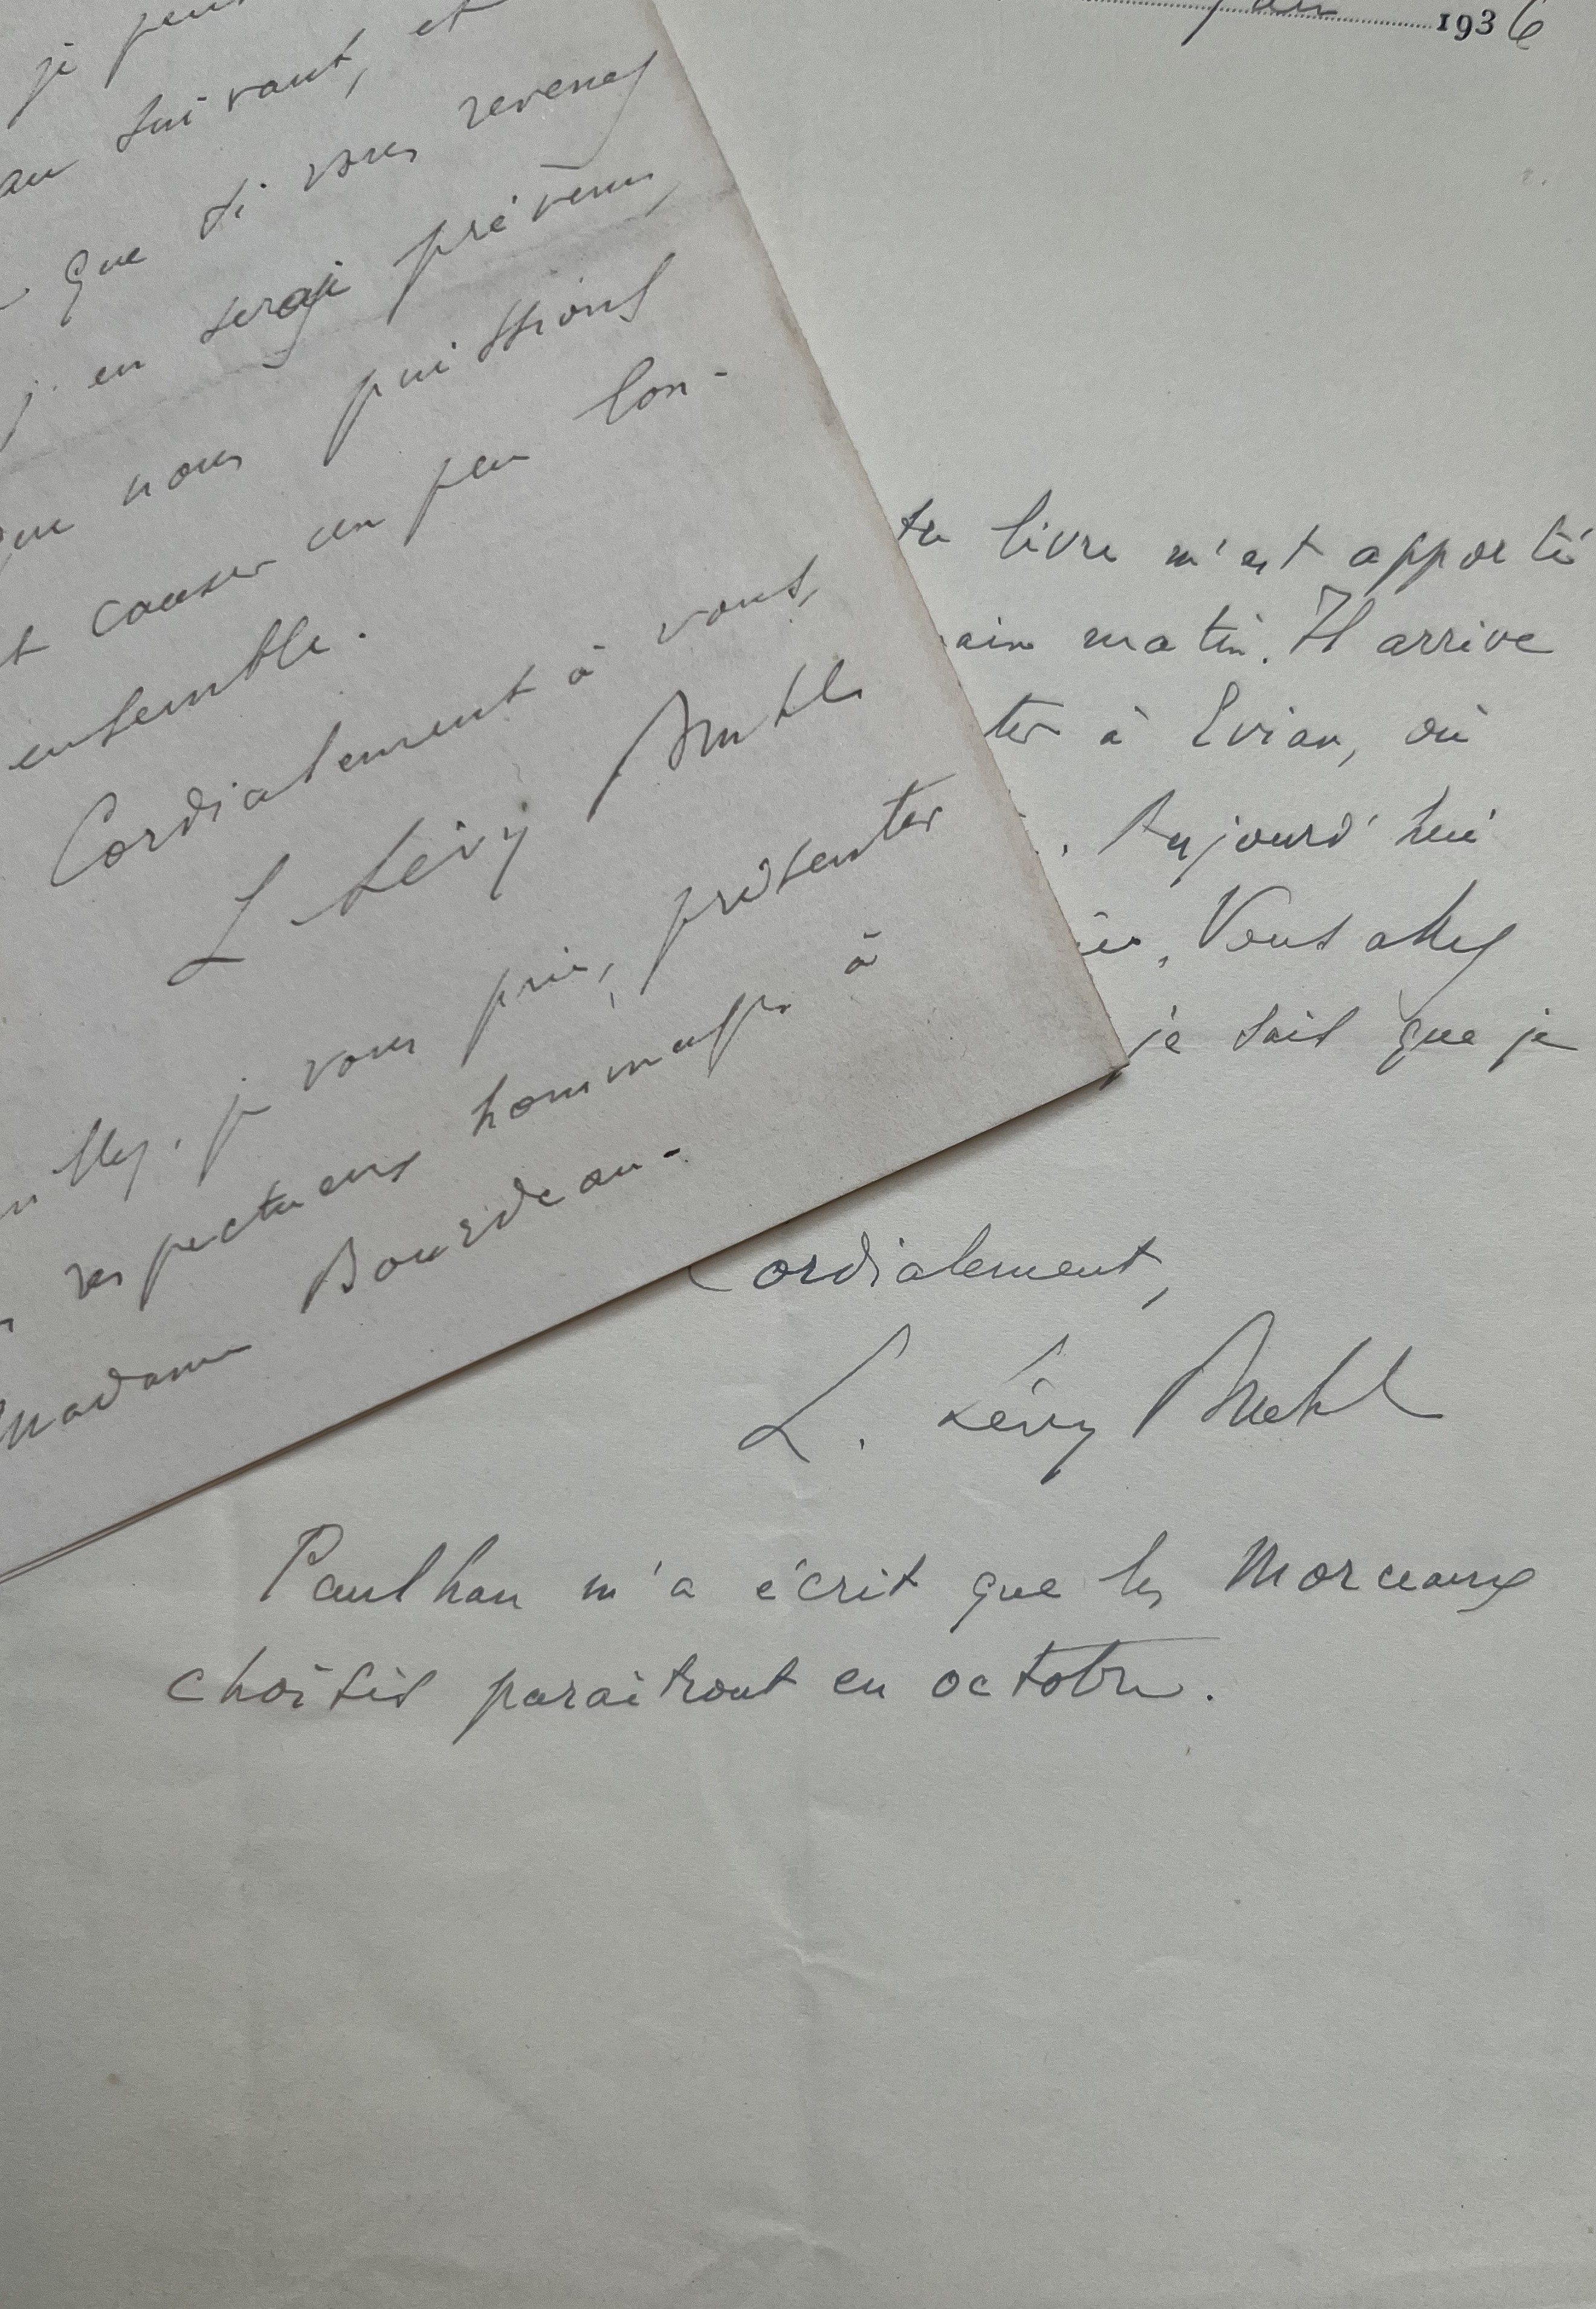 je peux
au suivant, et
que si vous revenez
j'en serai prévenu,
que nous puissions
et causer un peu lon-
ensemble.
Cordialement à vous,
L Lévy Bruhl
je vous prie, présenter
respectueux hommages à
Madame Bourdeau.
1936
livre m'est apporté
matin. Il arrive
à Evian, où
Aujourd'hui
Vous allez
je sais que je
Cordialement,
L. Lévy Bruhl
Paulhan m'a écrit que les Morceaux
choisis paraîtront en octobre.